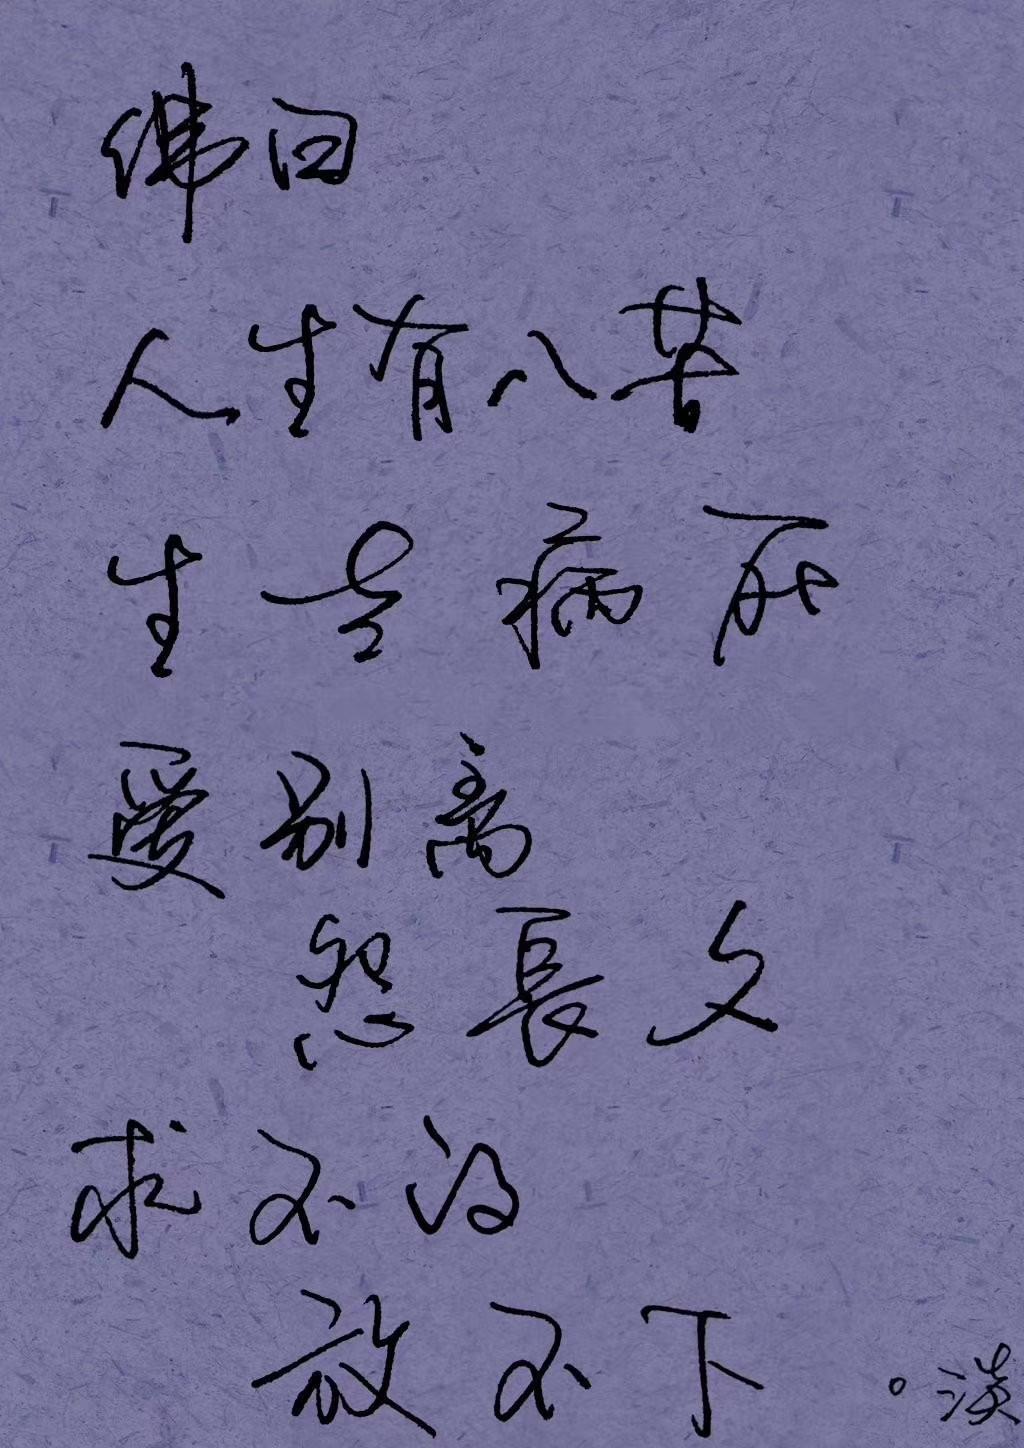 佛曰
人生有八苦
生老病死
愛别离
怨長久
求不得
放不下
。淡